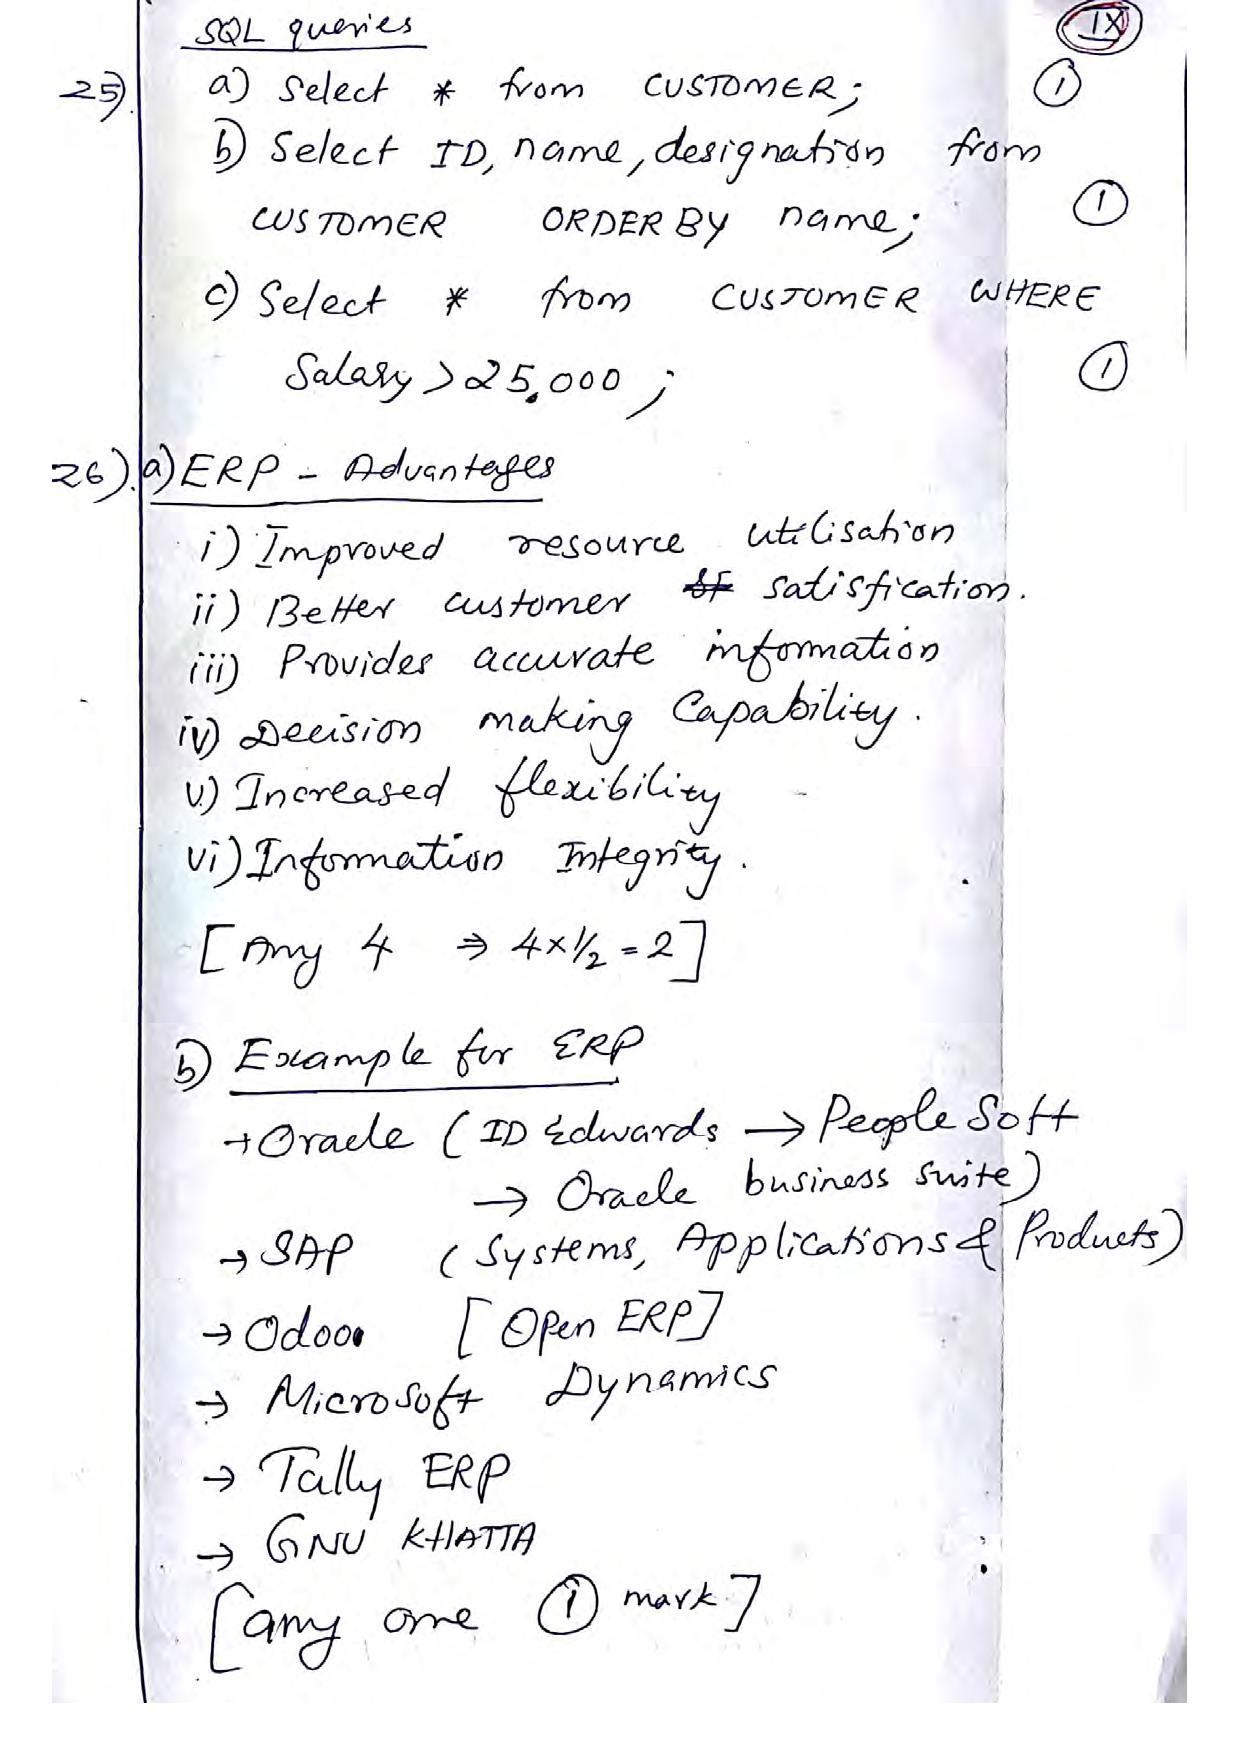 SQL queries
IX
25). a) Select * from CUSTOMER; 1
b) Select ID, name, designation from
CUSTOMER ORDER BY name; 1
c) Select * from CUSTOMER WHERE
Salary > 25,000 ; 1
26). a) ERP - Advantages
i) Improved resource utilisation
ii) Better customer satisfication.
iii) Provides accurate information
iv) Decision making Capability.
v) Increased flexibility
vi) Information Integrity.
[Any 4 ⇒ 4×1/2 = 2]
b) Example for ERP
→ Oracle (JD Edwards → People Soft
→ Oracle business suite)
→ SAP (Systems, Applications & Products)
→ Odoo [Open ERP]
→ Microsoft Dynamics
→ Tally ERP
→ GNU KHATTA
[any one 1 mark]